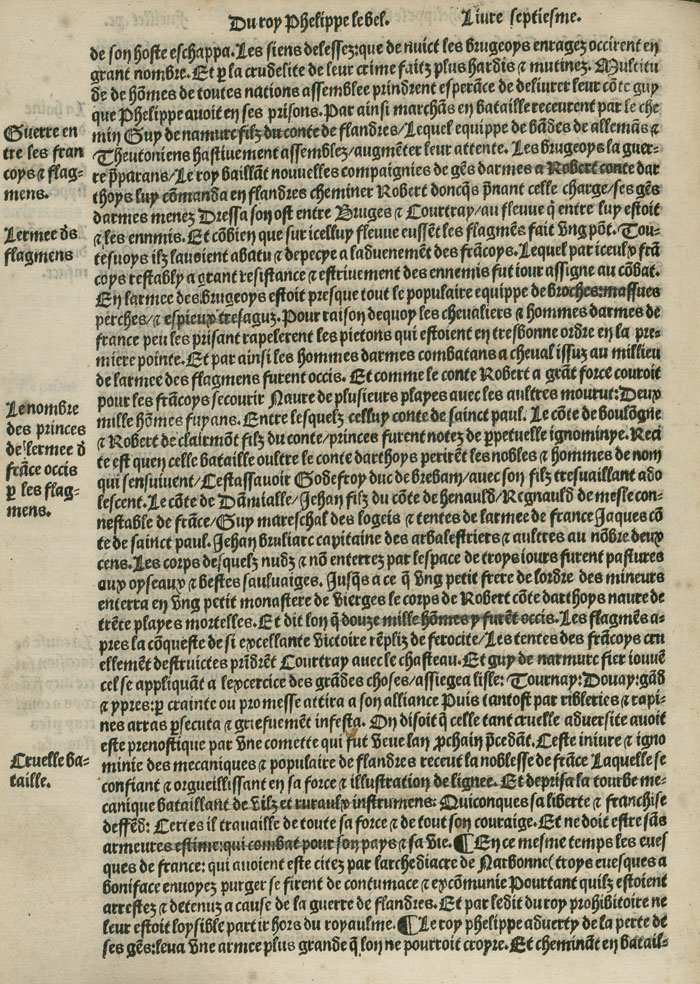 Du roy Phelippe le bel. Liure septiesme.
de son hoste eschappa. Les siens delessez: que de nuict les brugeoys enragez occirent en
grant nombre. Et p̱ la crudelite de leur crime faitz plus hardis ⁊ mutinez. Multitu
de de hõmes de toutes nations assemblee prindrent esperãce de deliurer leur cõte guy
que Phelippe auoit en ses prisons. Par ainsi marchãs en bataille receurent par le che
min Guy de namur filz du conte de flandres/Lequel equippe de bãdes de allemãs ⁊
Theutoniens hastiuement assemblez/augmẽter leur attente. Les brugeoys la guer-
re p̃parans/Le roy baillãt nouuelles compaignies de gẽs darmes a Robert conte dar
thoys luy cõmanda en flandres cheminer Robert doncq̃s p̃nant celle charge/ses gẽs
darmes menez Dressa son ost entre Bruges ⁊ Courtray/au fleuue q̃ entre luy estoit
⁊ les ennmis. Et cõbien que sur icelluy fleuue eussẽt les flagmẽs fait vng põt. Tou-
tesuoys ilz lauoient abatu ⁊ depecye a laduenemẽt des frãcoys. Lequel par iceulx frã
coys restably a grant resistance ⁊ estriuement des ennemis fut iour assigne au cõbat.
En larmee des brugeoys estoit presque tout le populaire equippe de broches: massues
perches/⁊ espieux tresaguz. Pour raison dequoy les cheualiers ⁊ hommes darmes de
france peu les prisant rapelerent les pietons qui estoient en tresbonne ordre en la pre-
miere pointe. Et par ainsi les hommes darmes combatans a cheual issuz au millieu
de larmee des flagmens furent occis. Et comme le conte Robert a grãt force couroit
pour les frãcoys secourir Naure de plusieurs playes auec les aultres mourut: Deux
mille hõmes fuyans. Entre lesquelz celluy conte de sainct paul. Le cõte de boulõgne
⁊ Robert de clairmõt filz du conte/princes furent notez de p̱petuelle ignominye. Reci
te est quen celle bataille oultre le conte darthoys perirẽt les nobles ⁊ hommes de nom
qui sensuiuent/Cestassauoir Godefroy duc de breban/auec son filz tresuaillant ado
lescent. Le cõte de Dãmialle/Jehan filz du cõte de henauld/Regnauld de mesle con-
nestable de frãce/Guy mareschal des logeis ⁊ tentes de larmee de france Jaques cõ
te de sainct paul. Jehan bruliarc capitaine des arbalestriers ⁊ aultres au nõbre deux
cens. Les corps desquelz nudz ⁊ nõ enterrez par lespace de troys iours furent pastures
aux oyseaux ⁊ bestes sauluaiges. Jusq̃s a ce q̃ vng petit frere de lordre des mineurs
enterra en vng petit monastere de vierges le corps de Robert cõte darthoys naure de
trẽte playes mortelles. Et dit lon q̃ douze mille hõmes y furẽt occis. Les flagmẽs a-
pres la cõqueste de si excellante victoire rẽpliz de ferocite/Les tentes des frãcoys cru
ellemẽt destruictes prĩdrẽt Courtray auec le chasteau. Et guy de narmurc fier iouuẽ
cel se appliquãt a lexcercice des grãdes choses/assiegea lisle: Tournay: Douay: gãd
⁊ ypres: p̱ crainte ou promesse attira a son alliance Puis tantost par ribleries ⁊ rapi-
nes arras p̱secuta ⁊ griefuemẽt infesta. On disoit q̃ celle tant cruelle aduersite auoit
este prenostique par vne comette qui fut veue lan p̱chain p̃cedãt. Ceste iniure ⁊ igno
minie des mecaniques ⁊ populaire de flandres receut la noblesse de frãce Laquelle se
confiant ⁊ orgueillissant en sa force ⁊ illustration de lignee. Et deprisa la tourbe me-
canique bataillant de vilz et ruraulx instrumens: Quiconques sa liberte ⁊ franchise
deffẽd: Certes il trauaille de toute sa force ⁊ de tout son couraige. Et ne doit estre sãs
armeures estime: qui combat pour son pays ⁊ sa vie. ¶ En ce mesme temps les eues
ques de france: qui auoient este citez par larchediacre de Narbonne(troys euesques a
boniface enuoyez purger se firent de contumace ⁊ excõmunie Pourtant quilz estoient
arrestez ⁊ detenuz a cause de la guerre de flandres. Et par ledit du roy prohibitoire ne
leur estoit loysible partir hors du royaulme. ¶ Le roy phelippe aduerty de la perte de
ses gẽs: leua vne armee plus grande q̃ lon ne pourroit croyre. Et cheminãt en batail-
Guerre en
tre les fran
coys ⁊ flag-
mens.
Lermee ds̃
flagmens
Le nombre
des princes
de lermee d̃
frãce occis
p̱ les flag-
mens.
Cruelle ba-
taille.